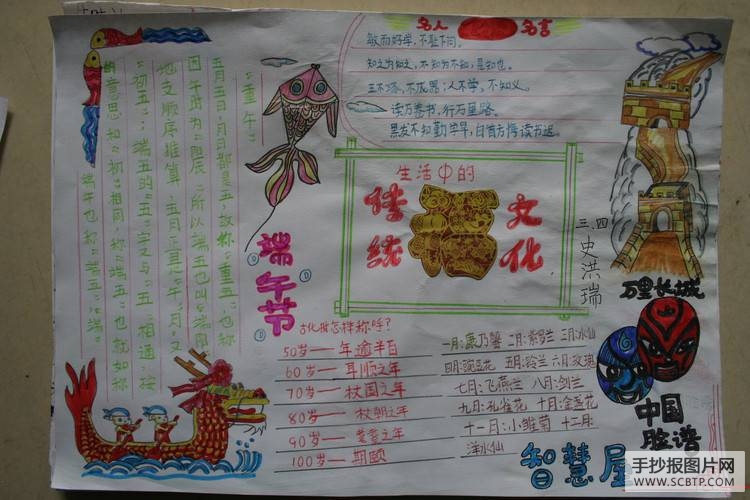 名人名言
敏而好学，不耻下问。
知之为知之，不知为不知，是知也。
玉不琢，不成器；人不学，不知义。
读万卷书，行万里路。
黑发不知勤学早，白首方悔读书迟。
生活中的
传统
文化
三、四
史洪瑞
万里长城
中国
脸谱
智慧屋
端午节
端午也称“端五”，“端”
的意思和“初”相同，称“端五”也就如称
“初五”；端五的“五”字又与“午”相通，按
地支顺序推算，五月正是“午”月。又
因午时为“阳辰”，所以端五也叫“端阳”
五月五日，月、日都是五，故称“重五”，也称
“重午”。
古代怎样称呼？
50岁——年逾半百
60岁——耳顺之年
70岁——杖国之年
80岁——杖朝之年
90岁——耄耋之年
100岁——期颐
一月：康乃馨 二月：紫罗兰 三月：水仙
四月：豌豆花 五月：铃兰 六月：玫瑰
七月：飞燕兰 八月：剑兰
九月：孔雀花 十月：金盏花
十一月：小雏菊 十二月：
洋水仙
手抄报图片网
WWW.SCBTP.COM